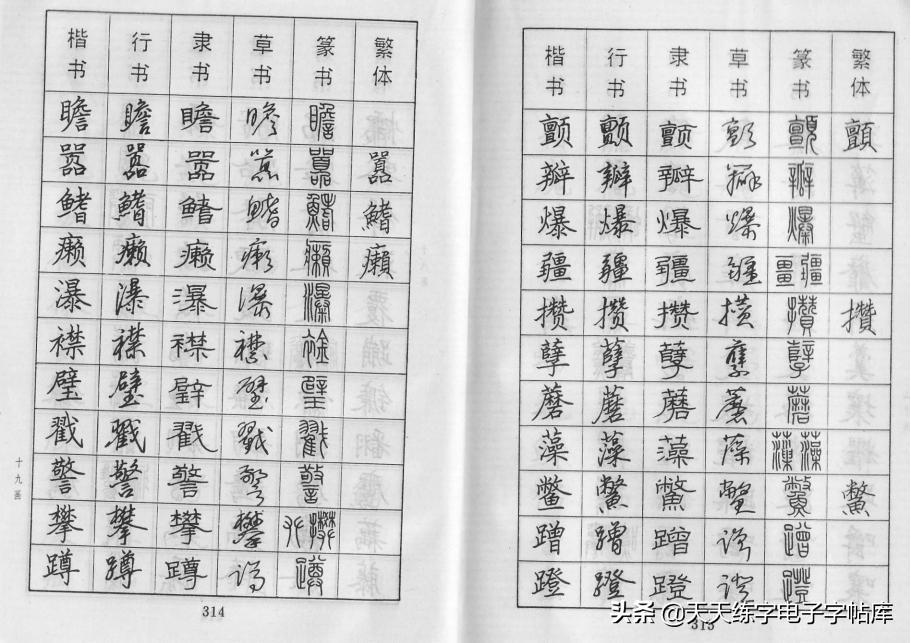 楷书 行书 隶书 草书 篆书 繁体
瞻 瞻 瞻 瞻 瞻
嚣 嚣 嚣 嚣 囂 囂
鳍 鳍 鳍 鳍 鰭 鰭
癞 癞 癞 癞 癩 癩
瀑 瀑 瀑 瀑 瀑
襟 襟 襟 襟
璧 璧 璧 璧 璧
戳 戳 戳 戳 戳
警 警 警 警 警
攀 攀 攀 攀 攀
蹲 蹲 蹲 蹲 蹲
十九画
314
楷书 行书 隶书 草书 篆书 繁体
颤 颤 颤 颤 顫 顫
瓣 瓣 瓣 瓣 瓣
爆 爆 爆 爆 爆
疆 疆 疆 疆 畺疆
攒 攒 攒 攒 攢 攢
孽 孽 孽 孽 孽
蘑 蘑 蘑 蘑 蘑
藻 藻 藻 藻 薻藻
鳖 鳖 鳖 鳖 鱉 鱉
蹭 蹭 蹭 蹭 蹭
蹬 蹬 蹬 蹬 蹬
315
头条 @天天练字电子字帖库